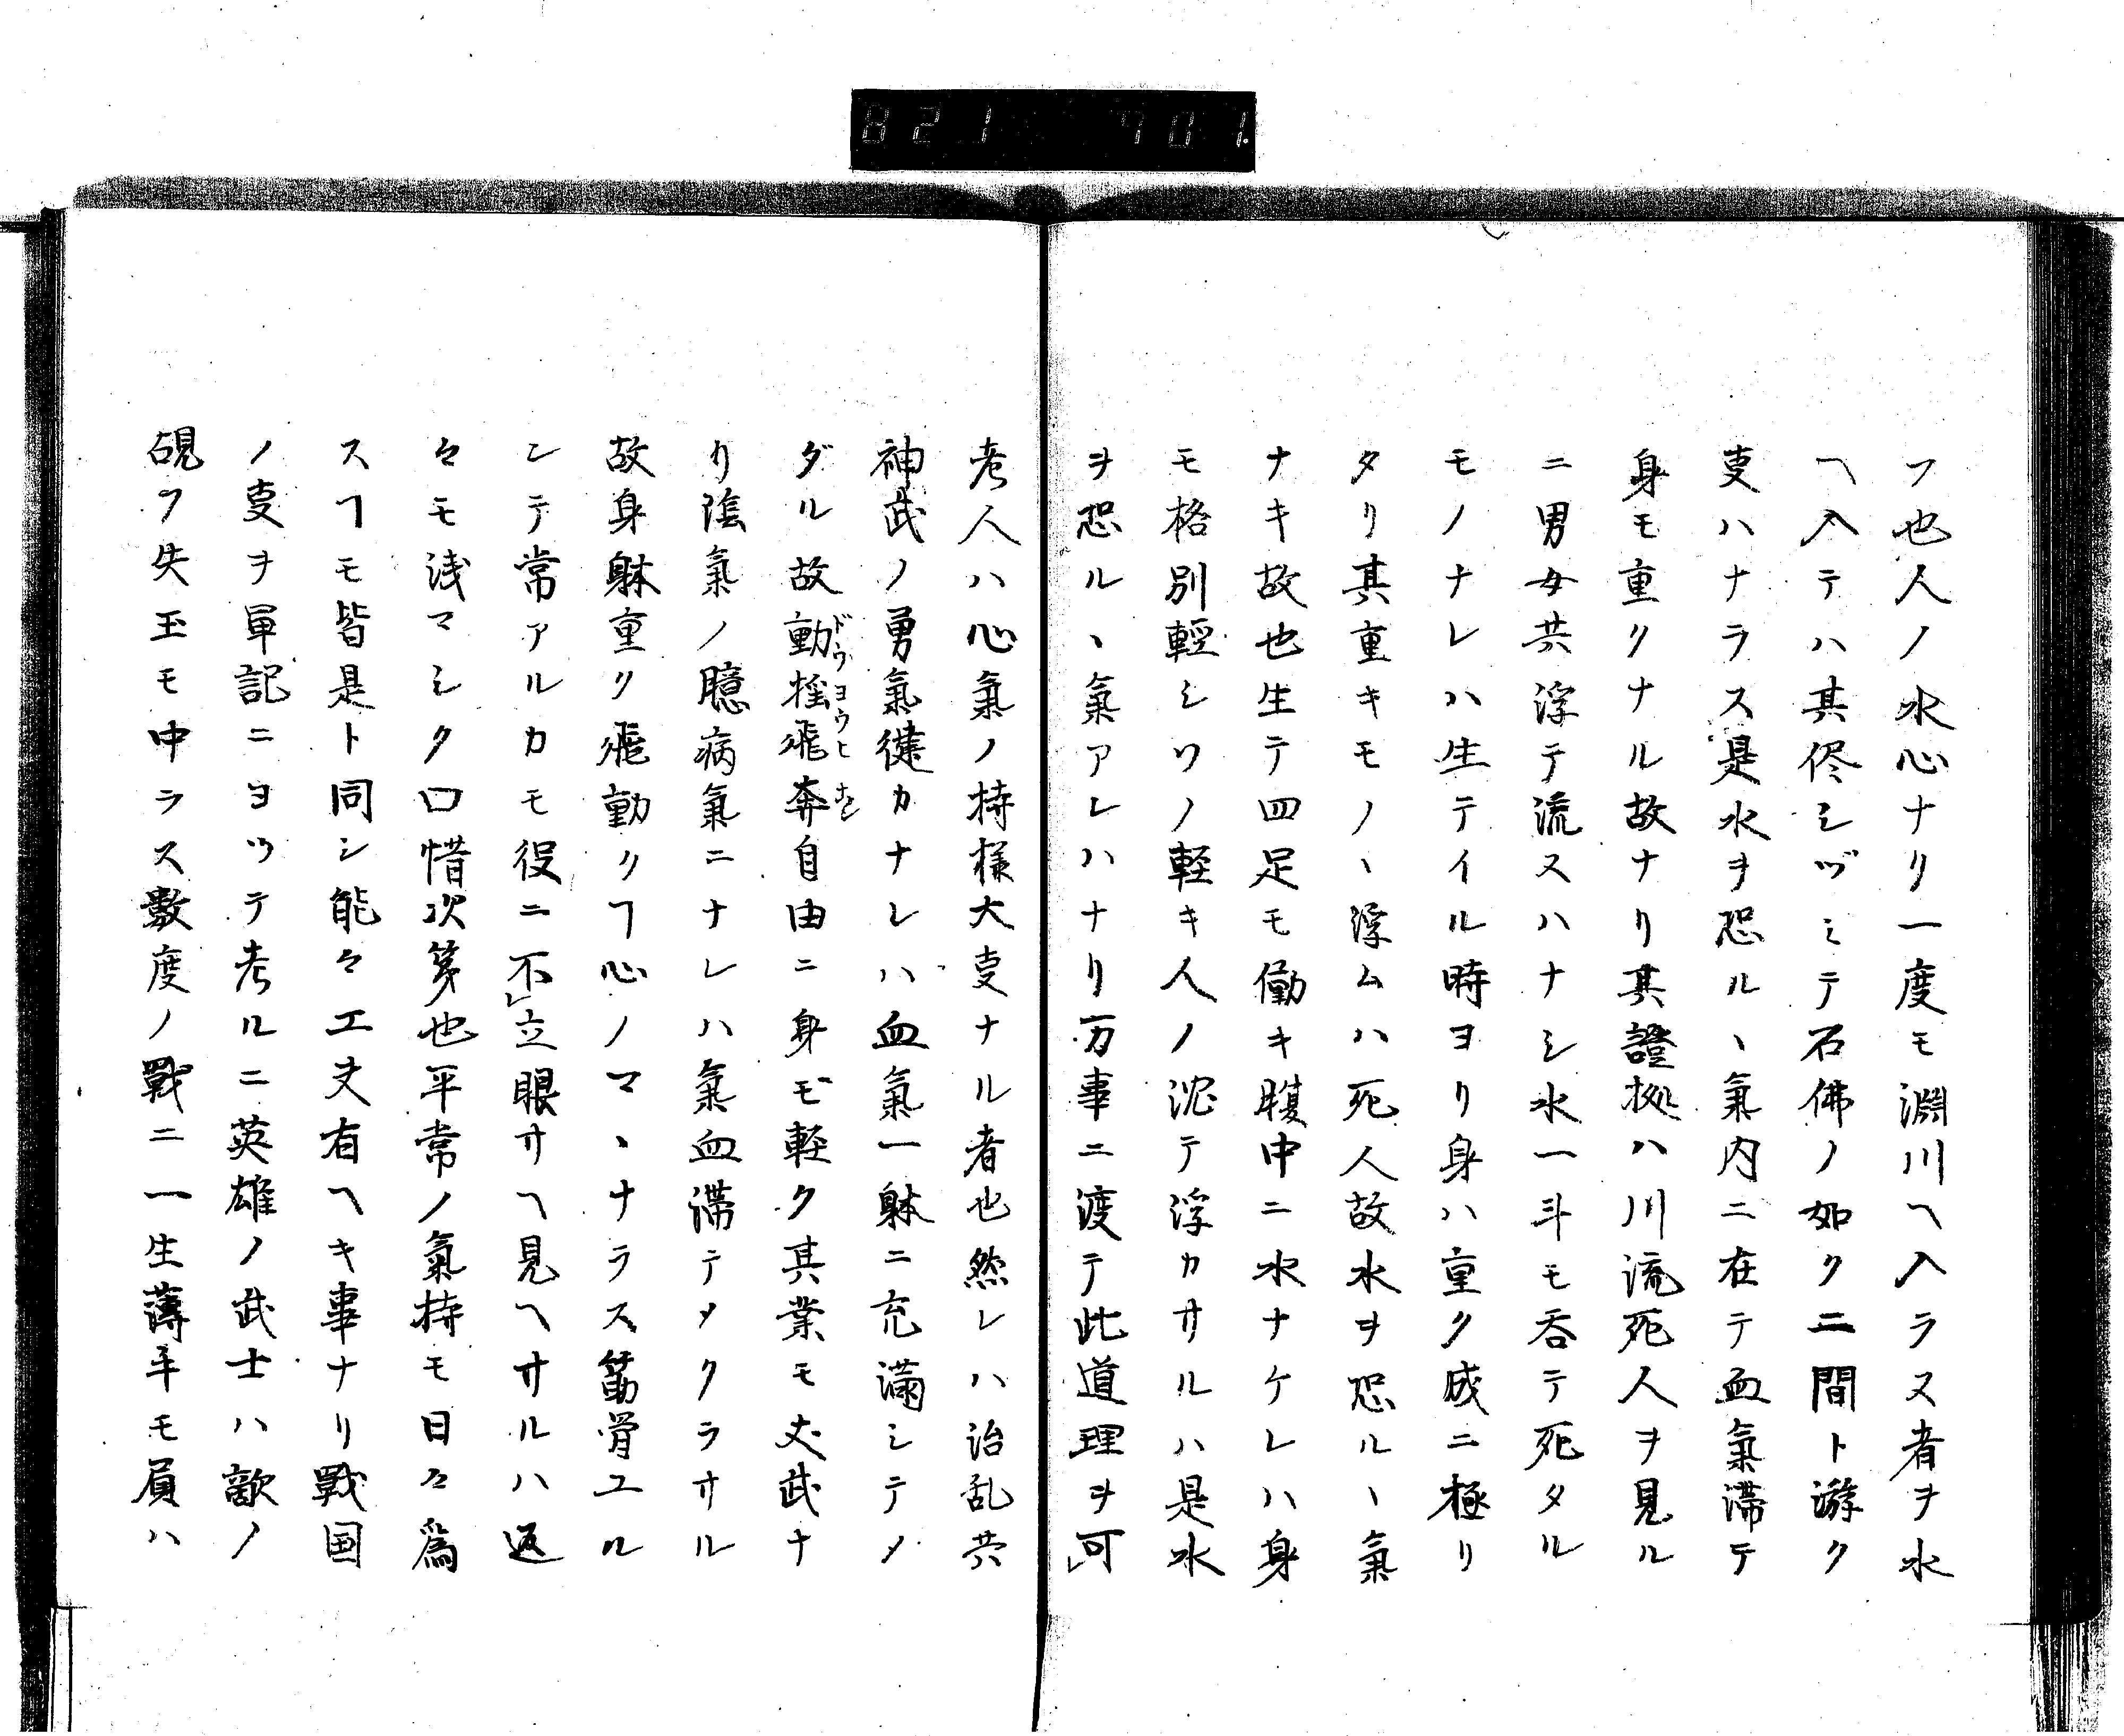 821 901.
フ也人ノ水心ナリ一度モ淵川ヘ入ラス者ヲ水
ヘ入テハ其侭シヅミテ石佛ノ如ク二間ト游ク
叓ハナラス是水ヲ恐ルヽ氣内ニ在テ血氣滞テ
身モ重クナル故ナリ其證拠ハ川流死人ヲ見ル
ニ男女共浮テ流スハナシ水一斗モ呑テ死タル
モノナレハ生テイル時ヨリ身ハ重ク成ニ極リ
タリ其重キモノヽ浮ムハ死人故水ヲ恐ルヽ氣
ナキ故也生テ四足モ働キ腹中ニ水ナケレハ身
モ格別輕シソノ軽キ人ノ沈テ浮カサルハ是水
ヲ恐ルヽ氣アレハナリ万事ニ渡テ此道理ヲ可レ
考人ハ心氣ノ持様大叓ナル者也然レハ治乱共
神武ノ勇氣健カナレハ血氣一躰ニ充満シテノ
ダル故動揺飛奔自由ニ身モ軽ク其業モ丈武ナ
ドウヨウヒ
リ陰氣ノ臆病氣ニナレハ氣血滞テメクラサル
故身躰重ク飛動クヿ心ノマヽナラス筋骨ユル
ンテ常アルカモ役ニ不レ立眼サヘ見ヘサルハ返
々モ浅マシク口惜次第也平常ノ氣持モ日々爲
スヿモ皆是ト同シ能々工夫有ヘキ事ナリ戰国
ノ叓ヲ軍記ニヨツテ考ルニ英雄ノ武士ハ敵ノ
覘フ矢玉モ中ラス數度ノ戰ニ一生薄手モ負ハ